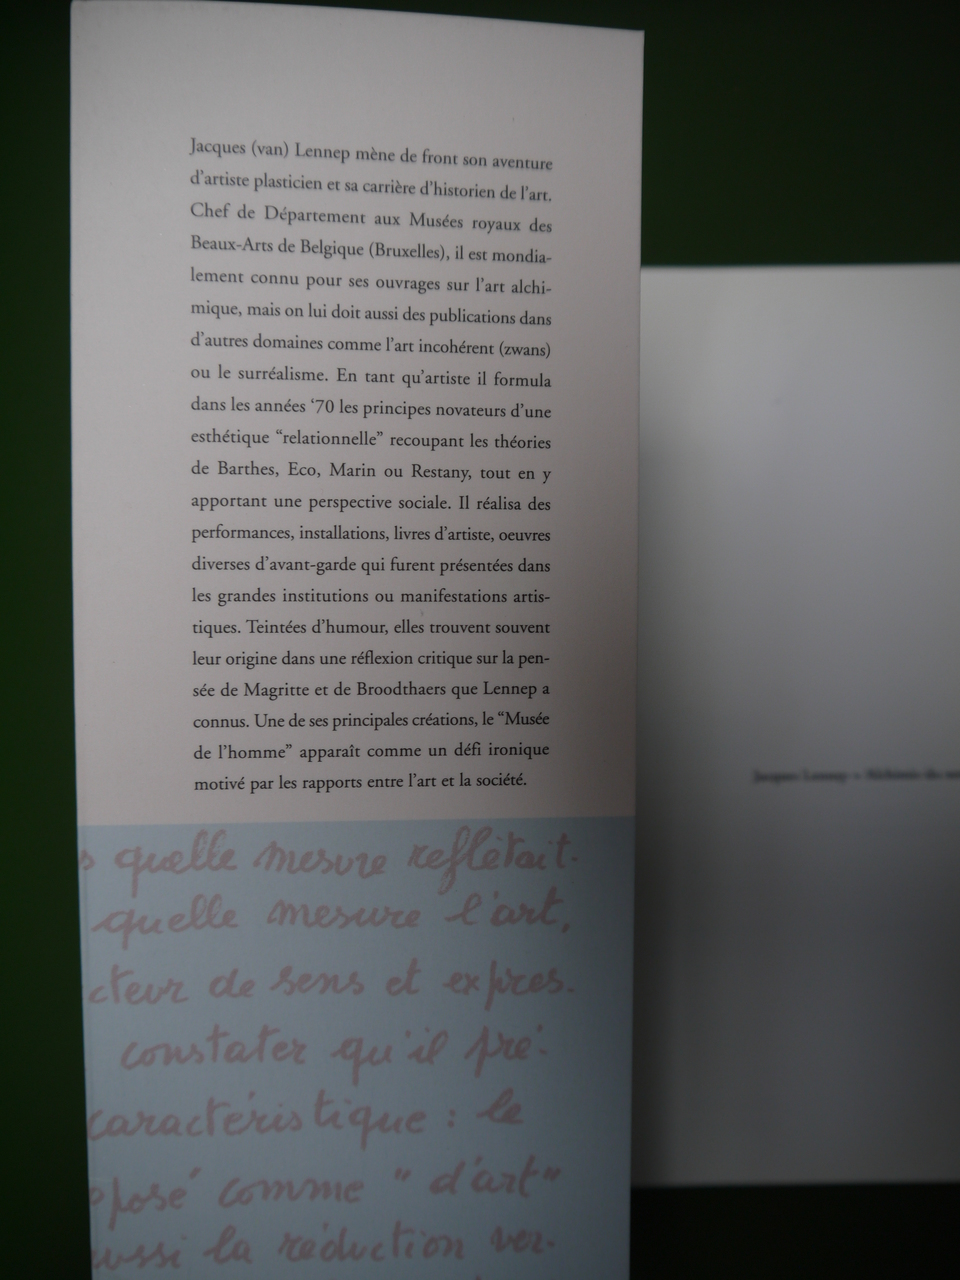 Jacques (van) Lennep mène de front son aventure
d'artiste plasticien et sa carrière d'historien de l'art.
Chef de Département aux Musées royaux des
Beaux-Arts de Belgique (Bruxelles), il est mondia-
lement connu pour ses ouvrages sur l'art alchi-
mique, mais on lui doit aussi des publications dans
d'autres domaines comme l'art incohérent (zwans)
ou le surréalisme. En tant qu'artiste il formula
dans les années ‘70 les principes novateurs d'une
esthétique “relationnelle” recoupant les théories
de Barthes, Eco, Marin ou Restany, tout en y
apportant une perspective sociale. Il réalisa des
performances, installations, livres d'artiste, oeuvres
diverses d'avant-garde qui furent présentées dans
les grandes institutions ou manifestations artis-
tiques. Teintées d'humour, elles trouvent souvent
leur origine dans une réflexion critique sur la pen-
sée de Magritte et de Broodthaers que Lennep a
connus. Une de ses principales créations, le “Musée
de l'homme” apparaît comme un défi ironique
motivé par les rapports entre l'art et la société.
s quelle mesure reflètait-
quelle mesure l'art,
cteur de sens et expres-
constater qu'il pré-
caractéristique : le
posé comme " d'art"
ussi la réduction ver-
Jacques Lennep — Alchimie du